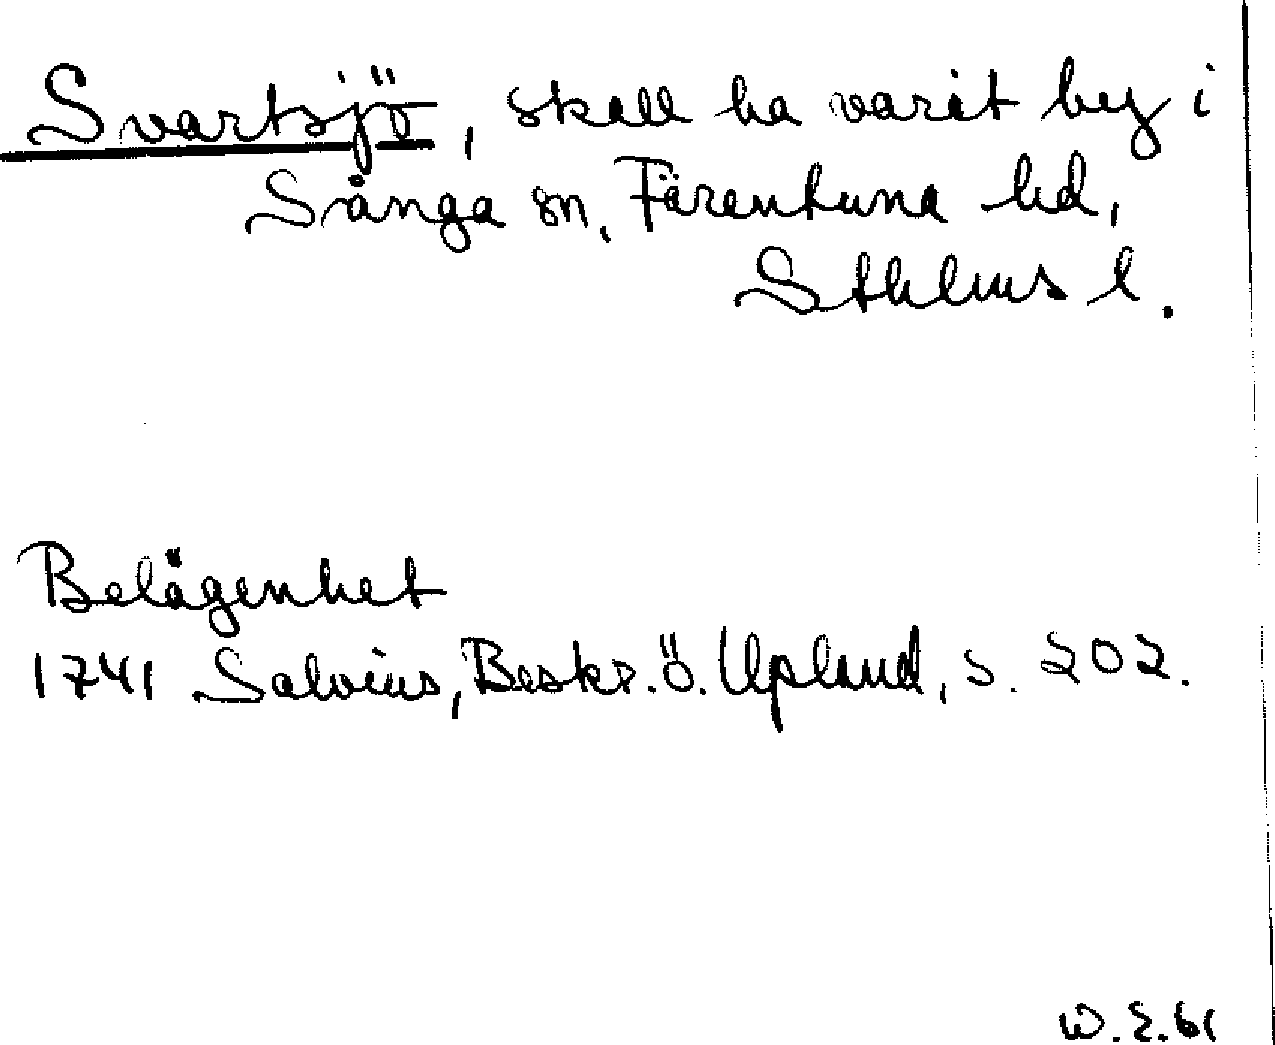 Svartsjö, skall ha varit by i
Sånga sn, Färentuna hd,
Sthlms l.
Belägenhet
1741 Salvius, Beskr. ö. Upland, s. 202.
W. E. 61